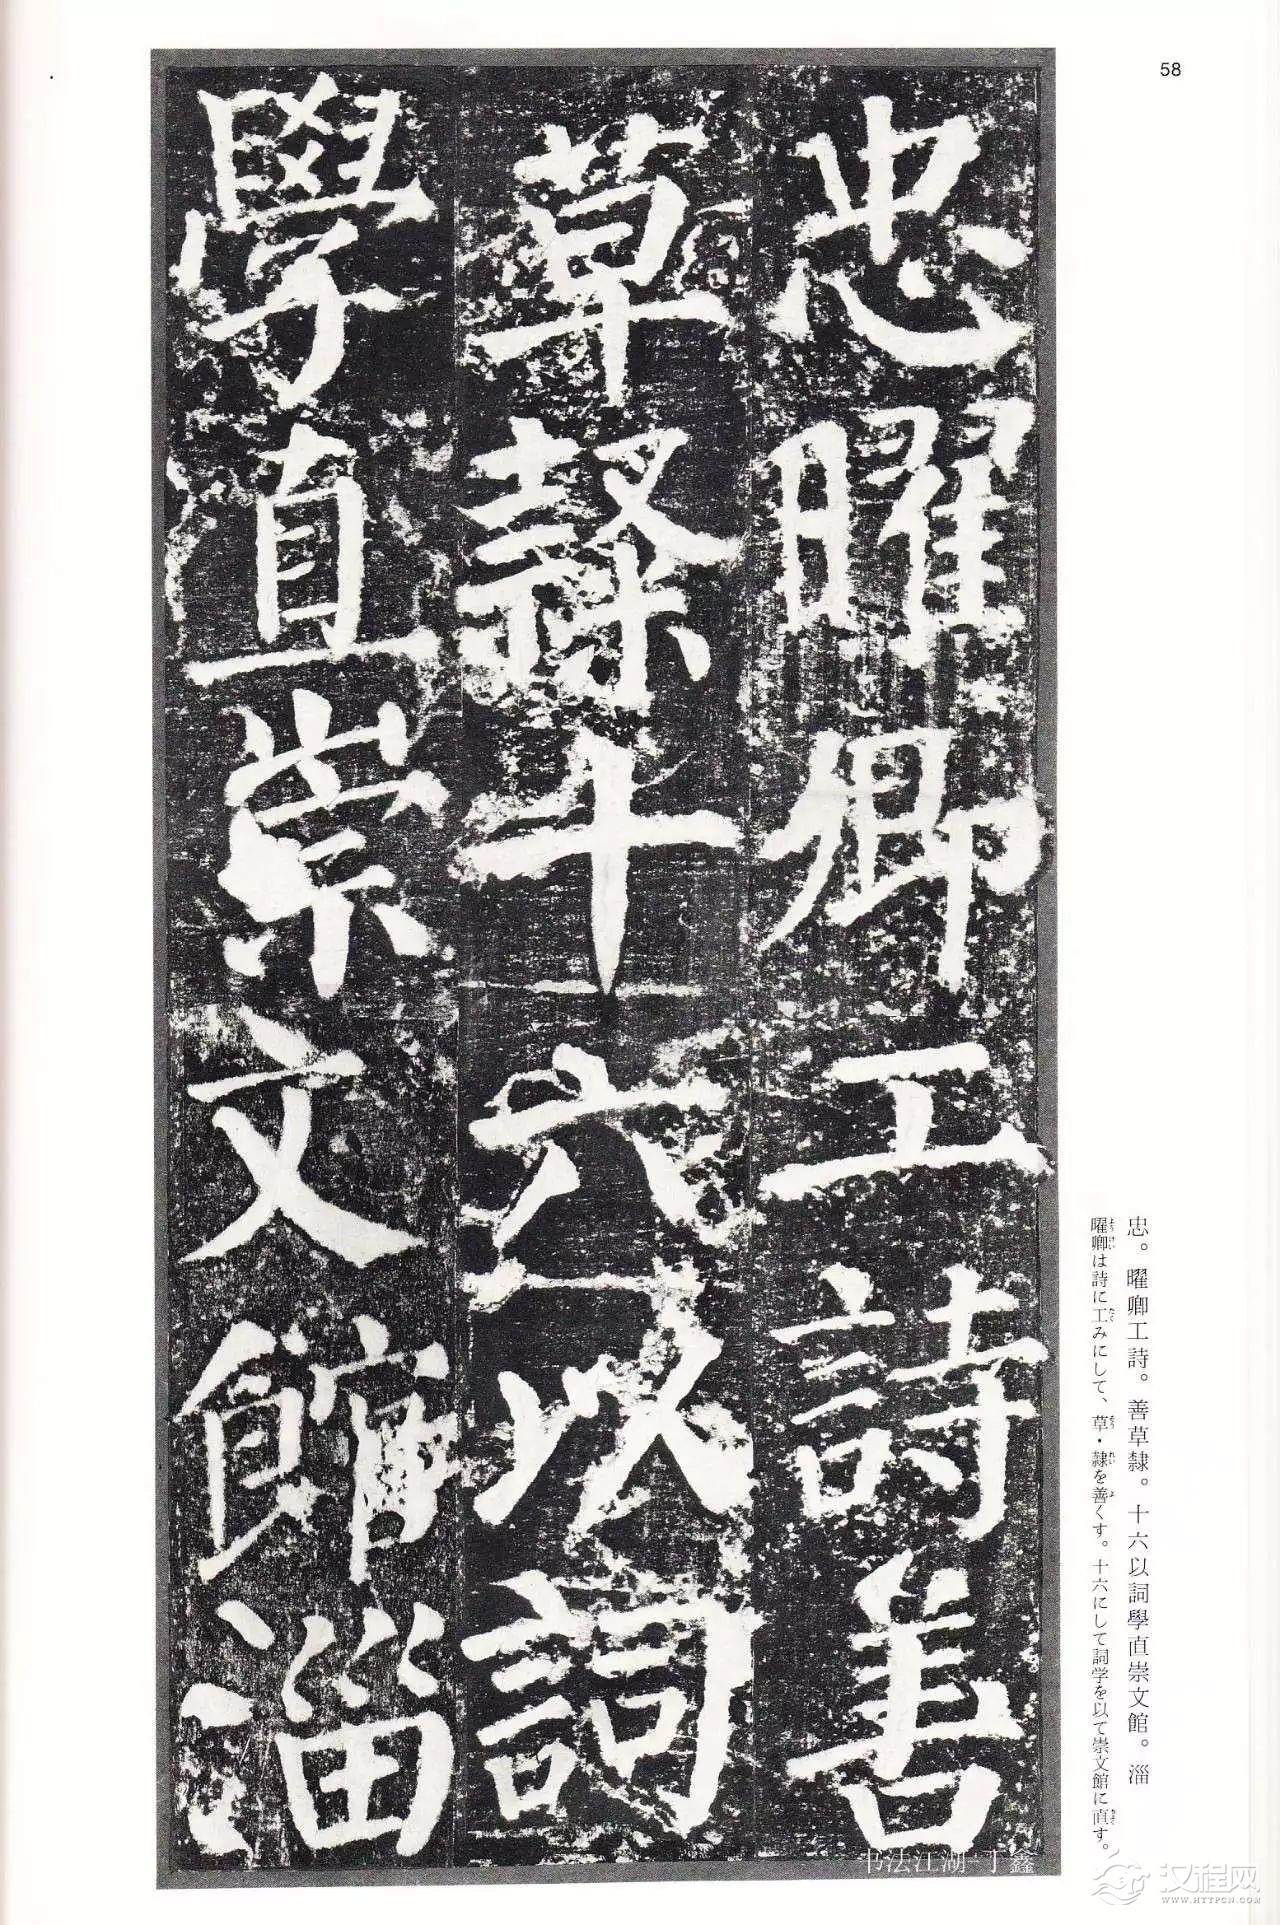 58
忠曜卿工詩善
草隸十六以詞
學直崇文館淄
忠。曜卿工詩。善草隸。十六以詞學直崇文館。淄
曜卿は詩に工みにして、草・隷を善くす。十六にして詞学を以て崇文館に直す。
书法江湖-丁鑫
汉程网
WWW.HTTPCN.COM